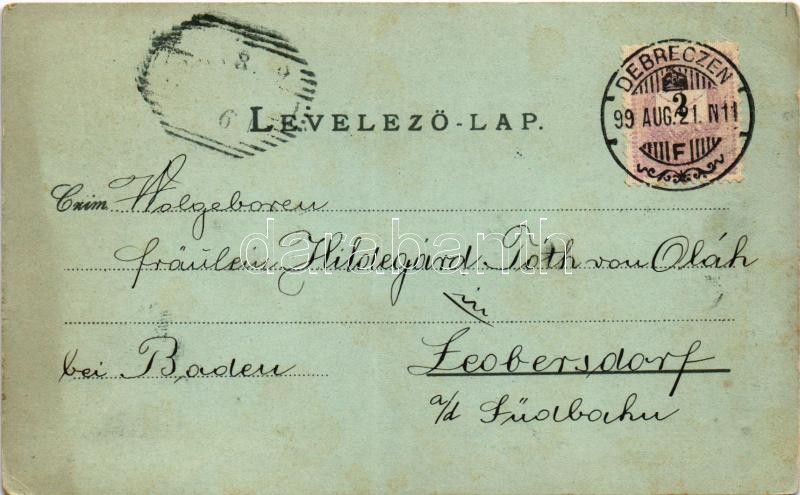 LEVELEZŐ-LAP.
DEBRECZEN
2
99 AUG. 21. N11
F
8
6
Czím Wolgeboren
fräulein Hildegárd Tóth von Oláh
in
bei Baden Leobersdorf
a/d Südbahn
darabanth